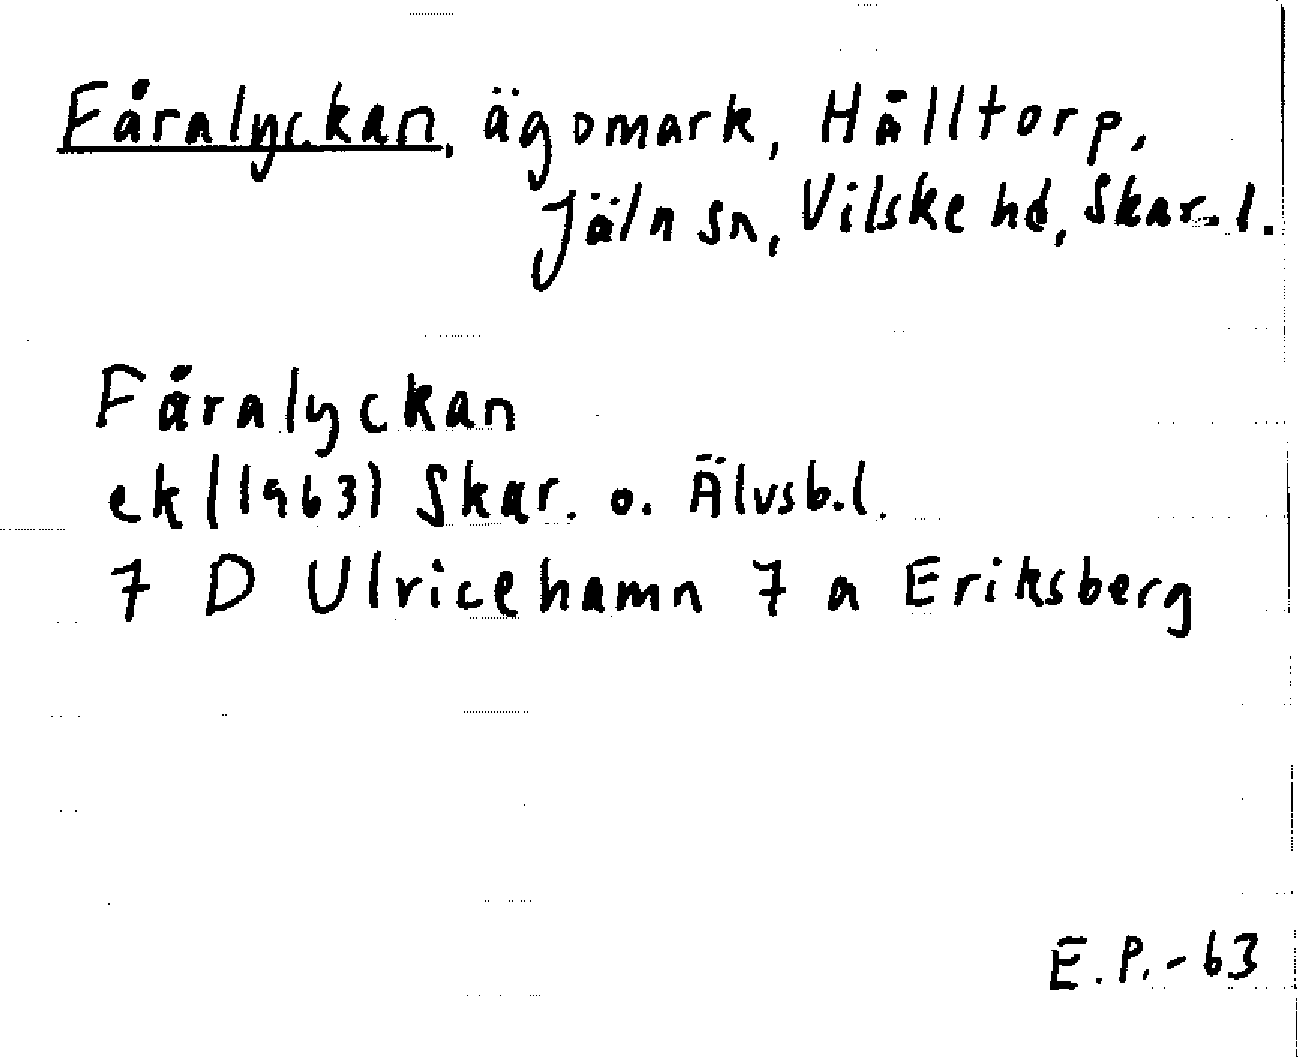 Fåralyckan, ägomark, Hålltorp,
Jäla sn, Vilske hd, Skar. l.
Fåralyckan
ek (1963) Skar. o. Älvsb.l.
7 D Ulricehamn 7 a Eriksberg
E.P.-63